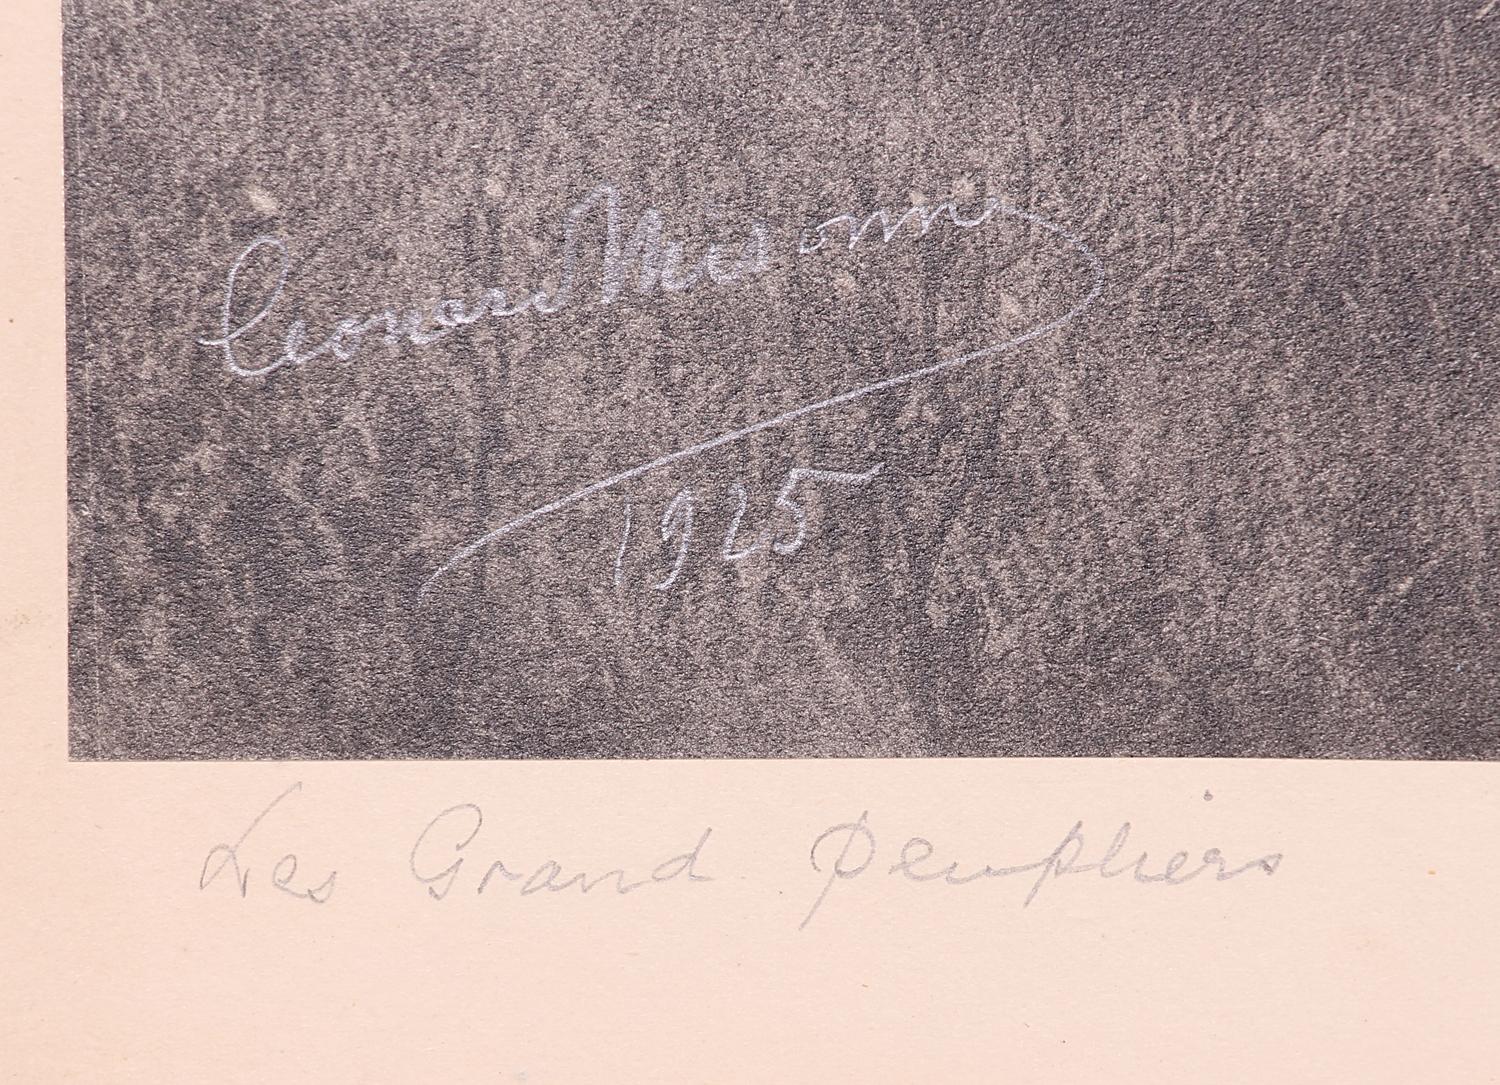 Leonard Misonne
1925
Les Grand Peupliers